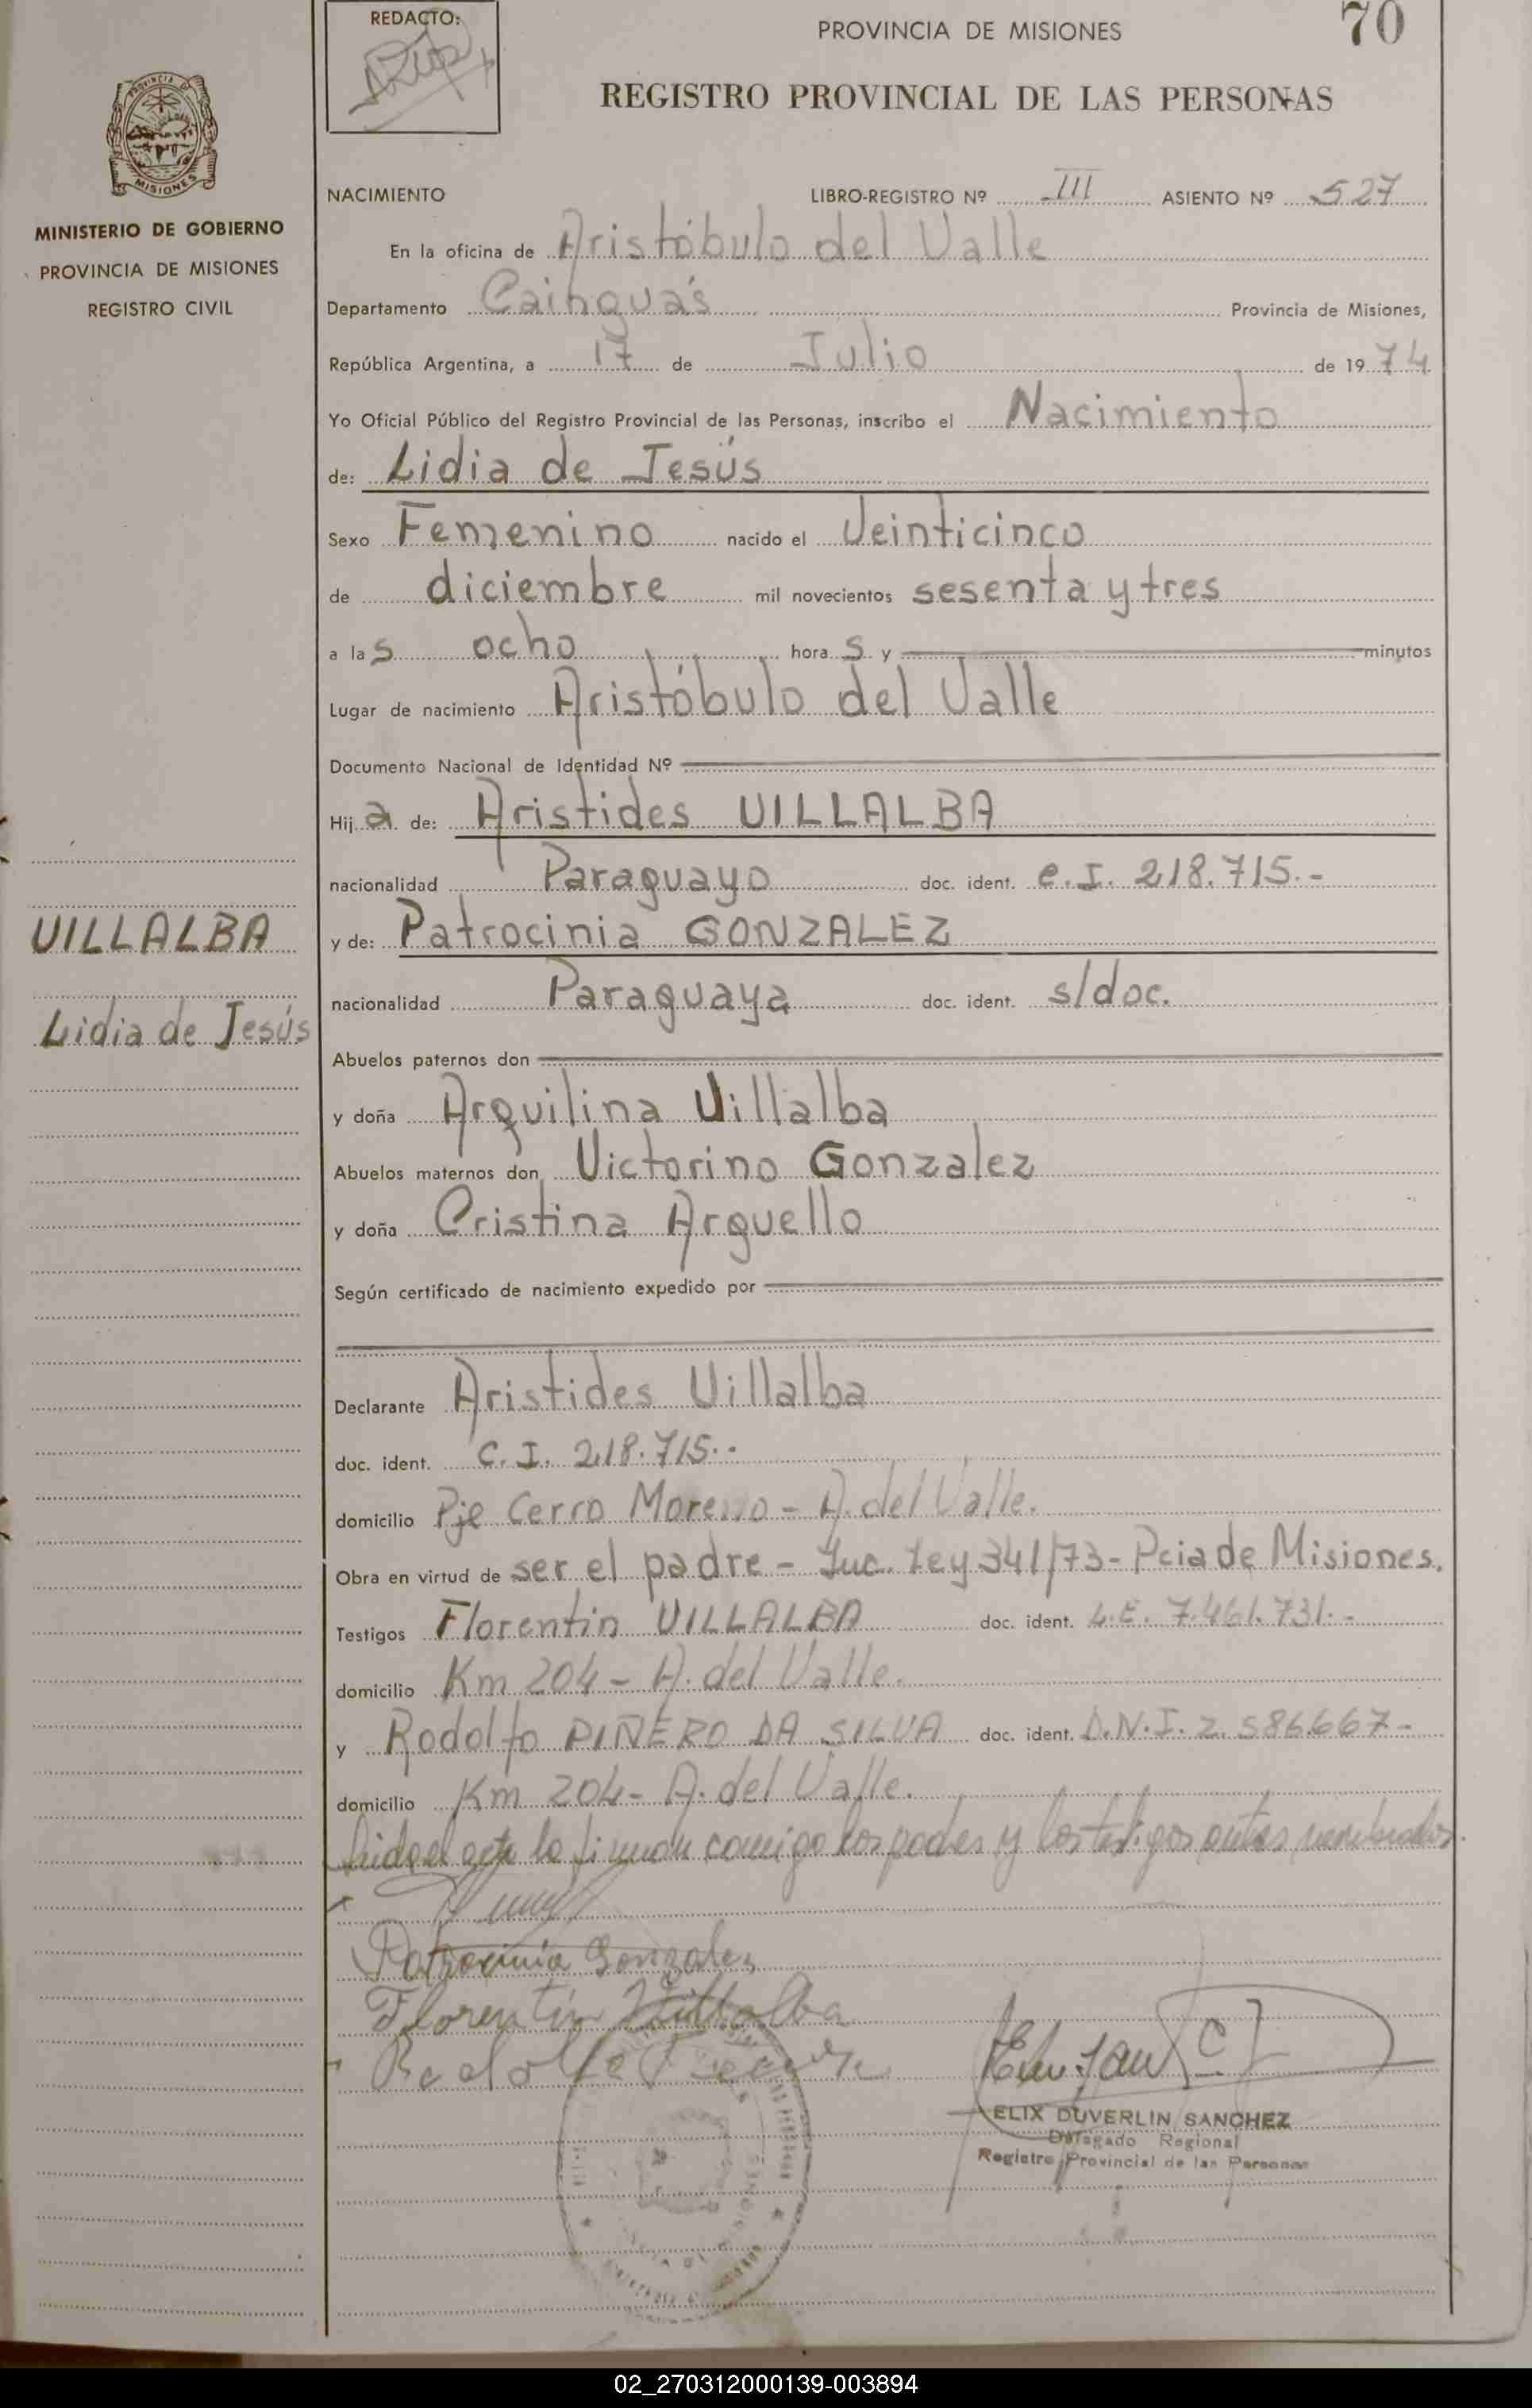 REDACTO:
PROVINCIA DE MISIONES
70
REGISTRO PROVINCIAL DE LAS PERSONAS
PROVINCIA DE
MISIONES
MINISTERIO DE GOBIERNO
PROVINCIA DE MISIONES
REGISTRO CIVIL
NACIMIENTO LIBRO-REGISTRO Nº III ASIENTO Nº 527
En la oficina de Aristóbulo del Valle
Departamento Cainguás Provincia de Misiones,
República Argentina, a 17 de Julio de 1974
Yo Oficial Público del Registro Provincial de las Personas, inscribo el Nacimiento
de: Lidia de Jesús
Sexo Femenino nacido el Veinticinco
de diciembre mil novecientos sesenta y tres
a las ocho horas y minutos
Lugar de nacimiento Aristóbulo del Valle
Documento Nacional de Identidad Nº
Hija de: Aristides VILLALBA
nacionalidad Paraguayo doc. ident. C.I. 218.715.-
VILLALBA
y de: Patrocinia GONZALEZ
nacionalidad Paraguaya doc. ident. s/doc.
Lidia de Jesús
Abuelos paternos don
y doña Arquilina Villalba
Abuelos maternos don Victorino Gonzalez
y doña Cristina Arguello
Según certificado de nacimiento expedido por
Declarante Aristides Villalba
doc. ident. C.I. 218.715.-
domicilio Pje Cerro Moreno - A. del Valle.
Obra en virtud de ser el padre - Inc. Ley 341/73 - Pcia de Misiones.
Testigos Florentin VILLALBA doc. ident. L.E. 7.461.731.-
domicilio Km 204 - A. del Valle.
y Rodolfo PIÑERO DA SILVA doc. ident. D.N.I. 2.586.667-
domicilio Km 204 - A. del Valle.
Leido el acta la firman conmigo los padres y los testigos antes nombrados.
Patrocinia Gonzalez
Florentín Villalba
Rodolfo
ELIX DUVERLIN SANCHEZ
Delegado Regional
Registro Provincial de las Personas
02_270312000139-003894